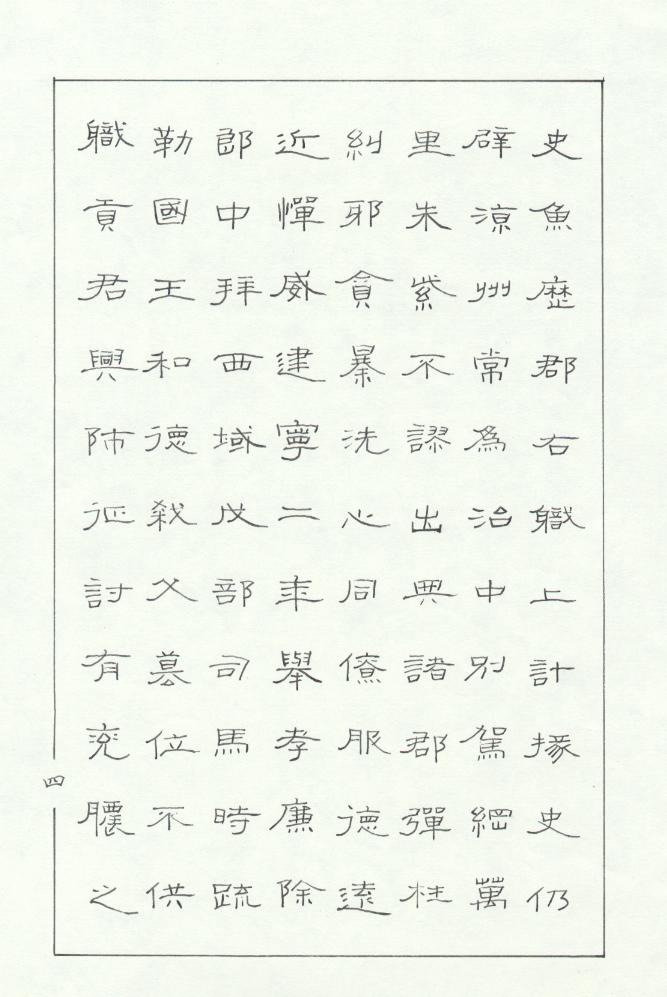 史魚歷郡右職上計掾史仍
辟涼州常爲治中別駕綱萬
里朱紫不謬出典諸郡彈枉
糾邪貪暴洗心同僚服德遠
近憚威建寧二年舉孝廉除
郎中拜西域戊部司馬時疏
勒國王和德弒父篡位不供
職貢君興師征討有兗膿之
四